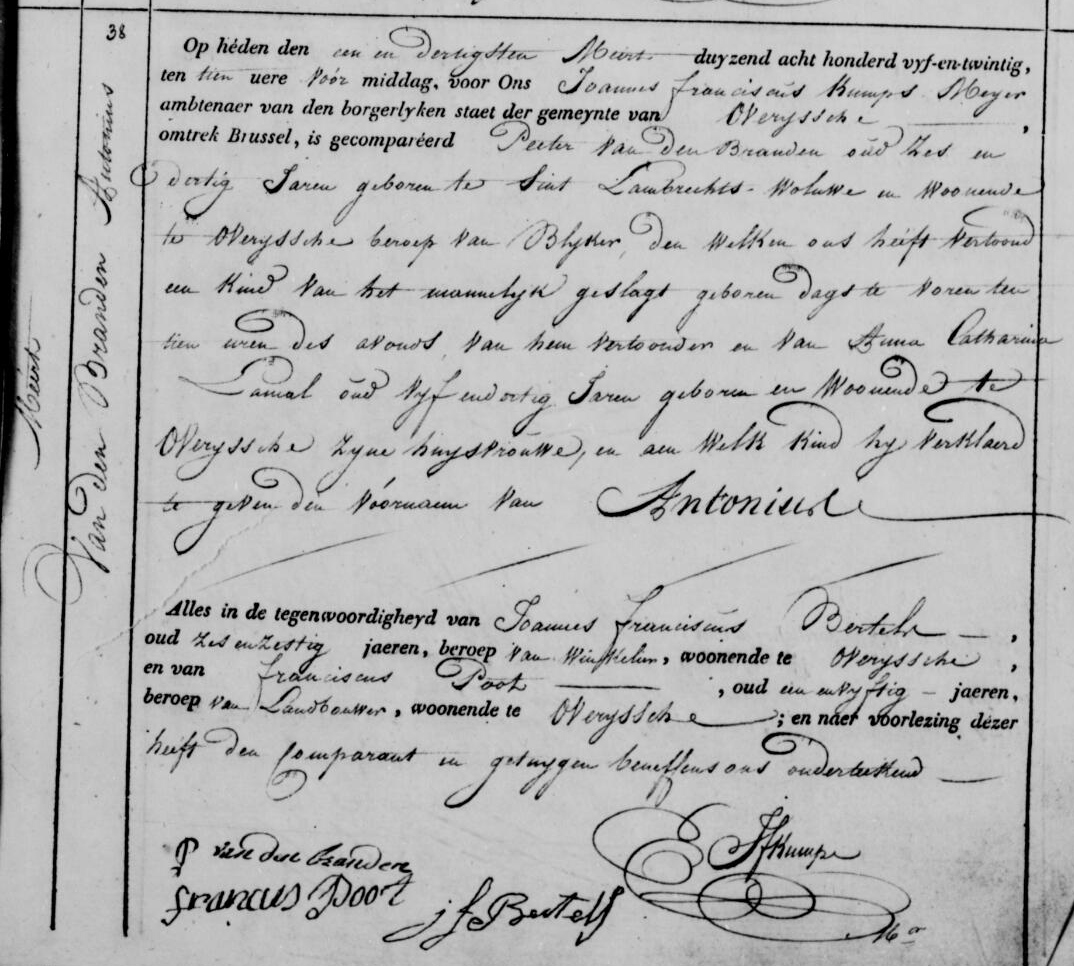 38
Meert
Van den Branden Antonius
Op héden den een en dertigsten Meert duyzend acht honderd vyf-en-twintig,
ten tien uere vóór middag, voor Ons Joannes franciscus Kumps Meyer
ambtenaer van den borgerlyken staet der gemeynte van Overyssche,
omtrek Brussel, is gecomparéerd Peeter Van den Branden oud Zes en
dertig Jaren geboren te Sint Lambrechts-Woluwe en Woonende
te Overyssche beroep van Blyker, den welken ons heéft vertoond
een kind van het mannelyk geslagt geboren dags te voren ten
tien uren des avonds, van hem vertoonder en van Anna Catharina
Lamal oud vyf en dertig Jaren geboren en Woonende te
Overyssche zyne huysvrouwe, en aen welk kind hy verklaerd
te geven den vóórnaem van Antonius
Alles in de tegenwoordigheyd van Joannes franciscus Bertels,
oud zes en zestig jaeren, beroep van Winkelier, woonende te Overyssche,
en van franciscus Poot, oud een en vyftig jaeren,
beroep van Landbouwer, woonende te Overyssche; en naer voorlezing dézer
heeft den Comparant en getuygen beneffens ons onderteekend
P van den branden
JfKumps
francus Poot
j f Bertels
M.er